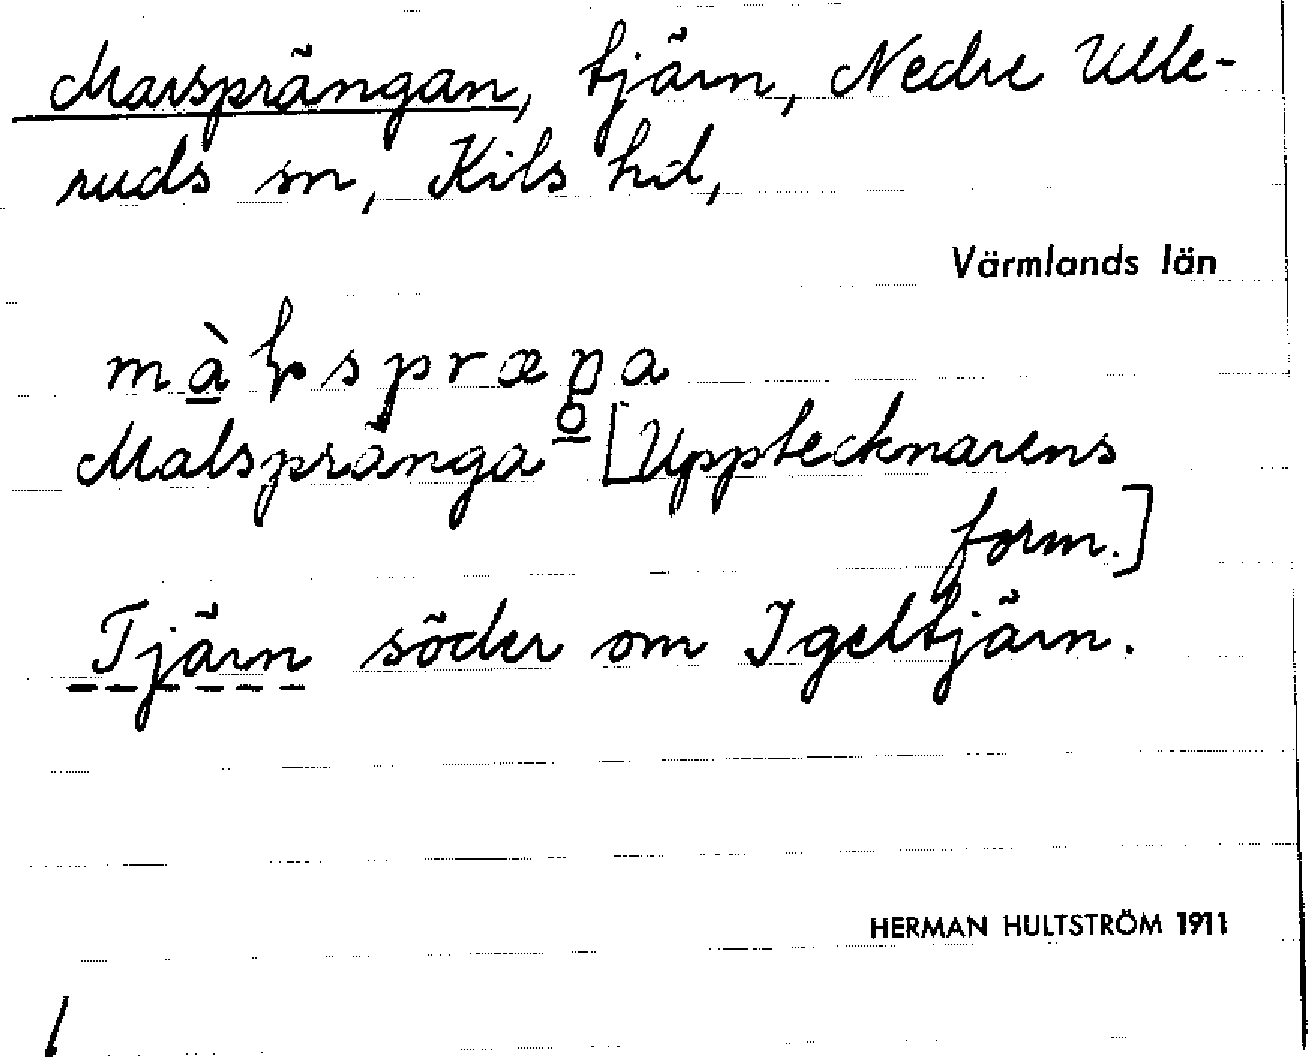 Marsprängan, tjärn, Nedre Ulle-
ruds sn, Kils hd,
Värmlands län
Malspränga [Upptecknarens
form.]
Tjärn söder om Igeltjärn.
HERMAN HULTSTRÖM 1911